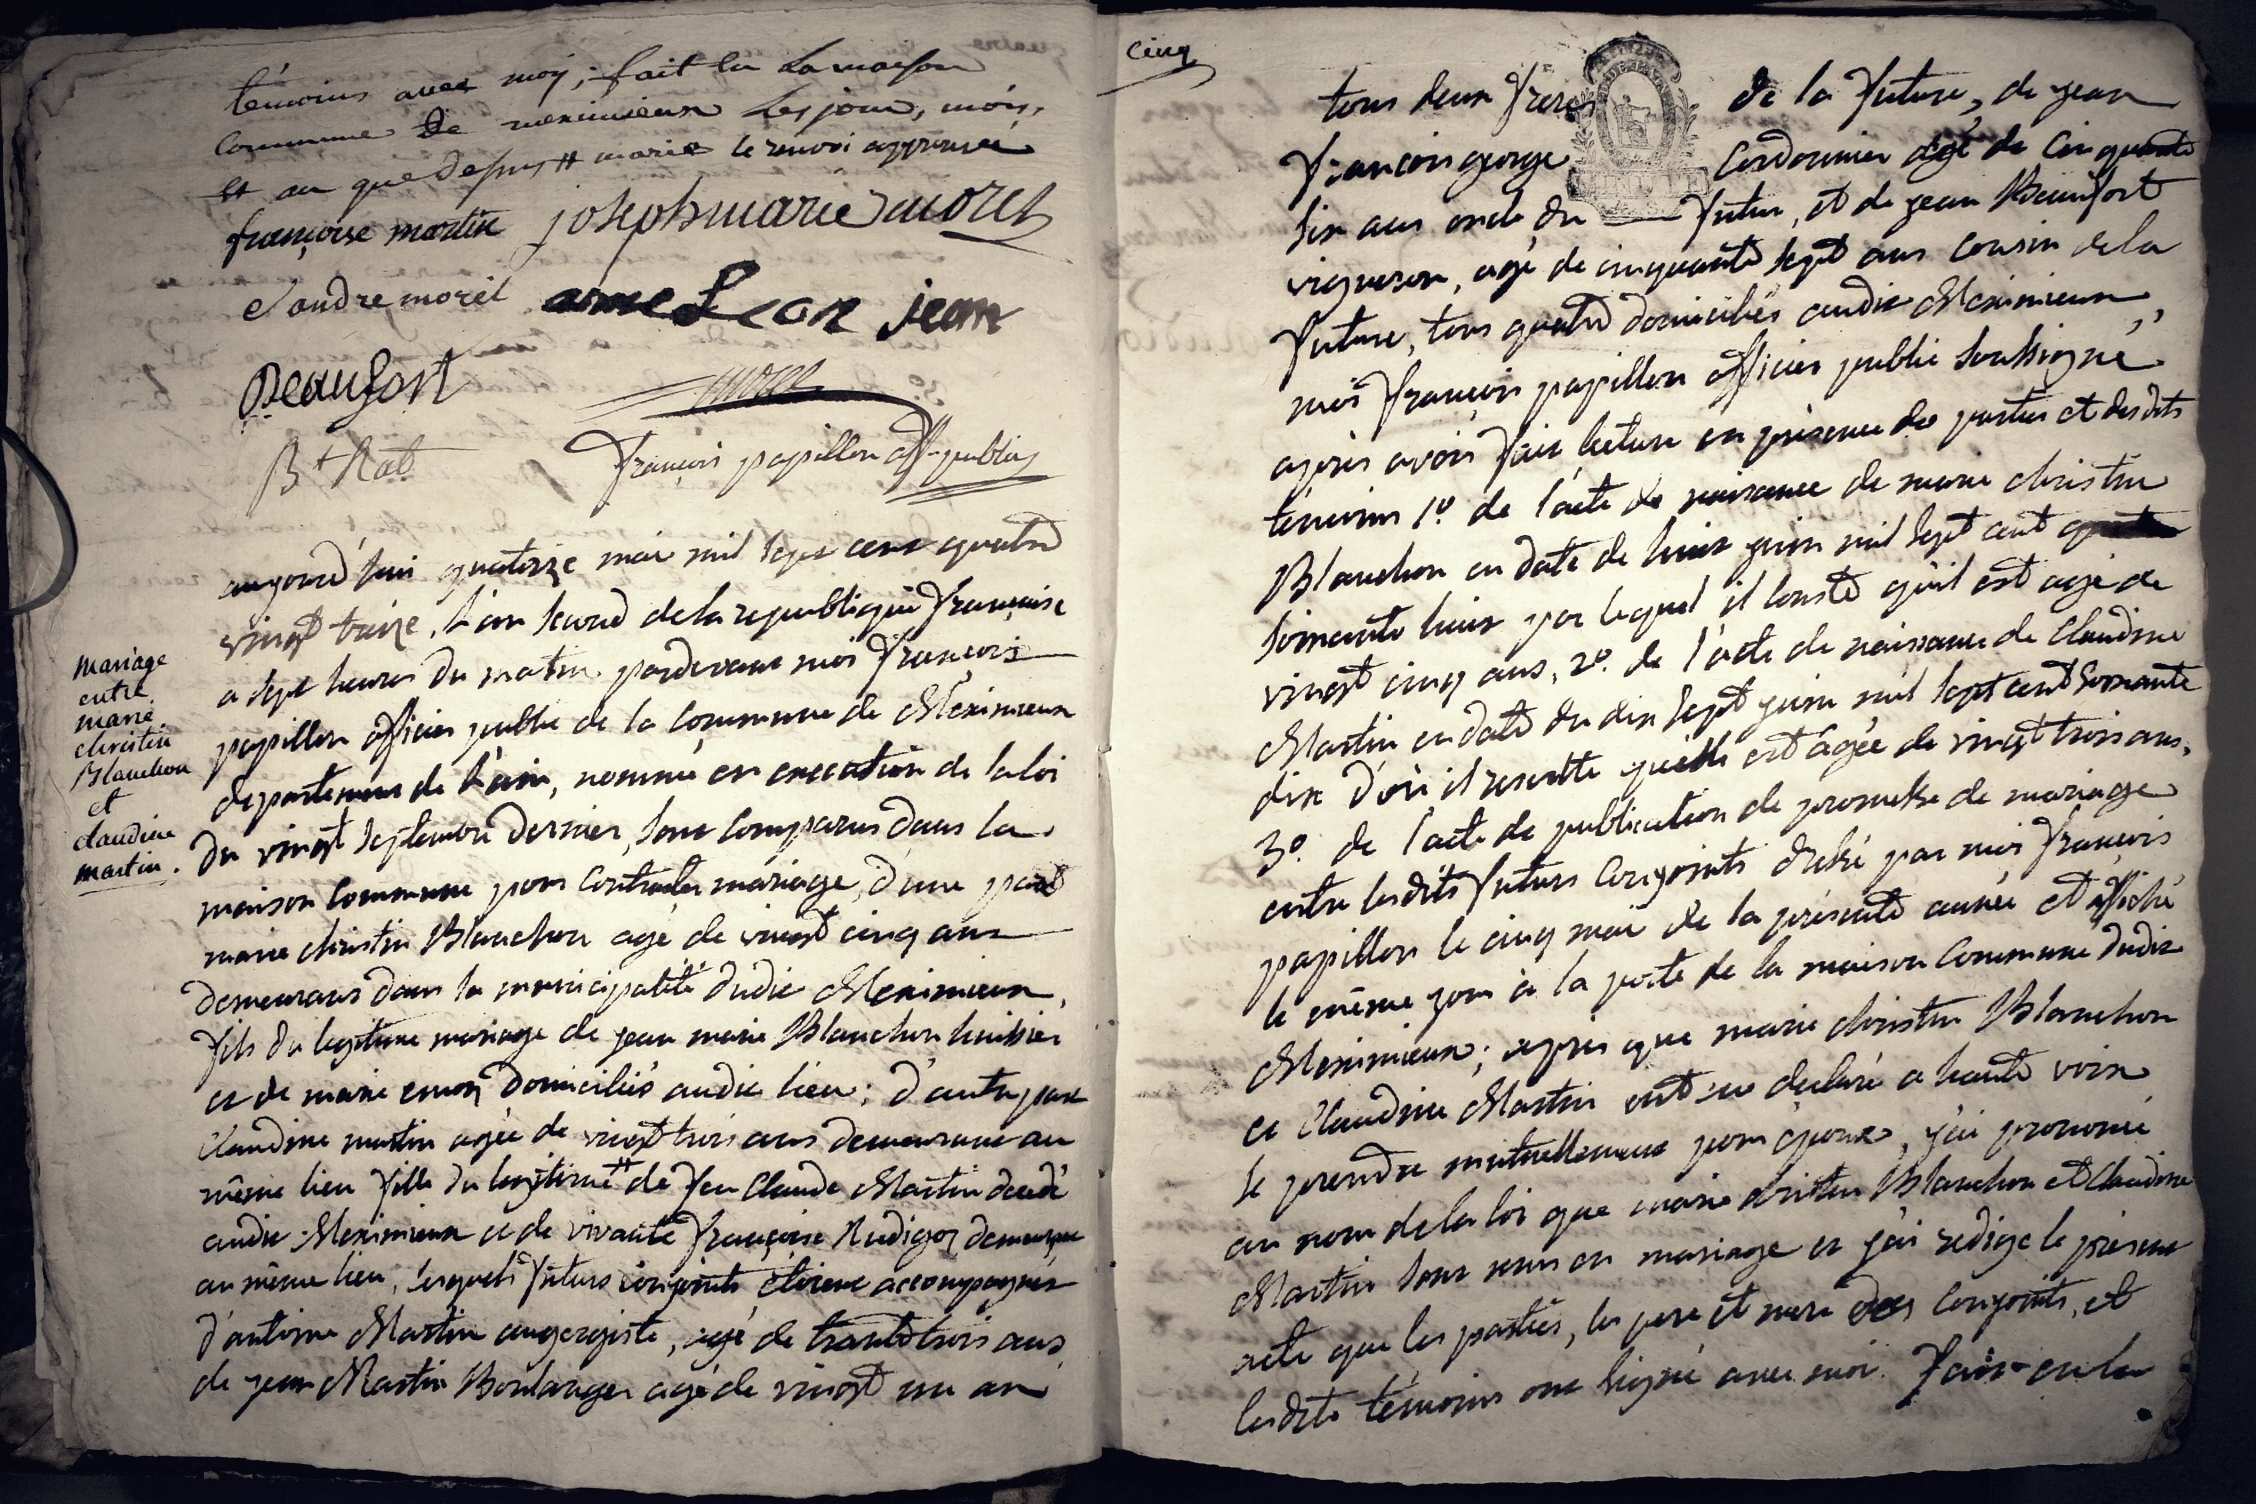 témoins avec moy; fait en La maison
Commune De meximieux Les jour, mois,
et an que Dessus # marie le renvoi approuvé
françoise martin joseph marie morel
Claudre morel jean
Beaufort
morel
B + Rat
françois papillon off. public
mariage
entre
marie
christin
Blanchon
et
claudine
martin.
aujourd'hui quatorze mai mil sept cent quatre
vingt treize, l'an second de la republique françoise
a sept heures du matin pardevant moi françois
papillon officier public de la Commune de Meximieux
departement de l'ain, nommé en execution de la loi
du vingt septembre dernier, sont comparus dans la
maison commune pour contracter mariage, d'une part
marie christin Blanchon agé de vingt cinq ans
demeurant dans la municipalité dudit Meximieux,
fils du legitime mariage de jean marie Blanchon huissier
et de marie domiciliés audit lieu; d'autre part
claudine martin agée de vingt trois ans demeurant au
même lieu fille du legitime # de feu Claude Martin decedé
audit Meximieux et de vivante françoise Rudigoz demeurant
au même lieu, lesquels futurs conjoints étoient accompagnés
d'antoine Martin augergiste, agé de trente trois ans
de jean Martin Boulanger agé de vingt un an
Cinq
tous deux freres de la future, de jean
françois george Cordonnier agé de cinquante
six ans oncle du futur, et de jean Beaufort
vigneron, agé de cinquante sept ans cousin de la
future, tous quatre domiciliés audit Meximieux,
moi françois papillon officier public soussigné
apres avoir fait lecture en presence des parties et desdits
témoins 1º. de l'acte de naissance de marie christin
Blanchon en date de huit juin mil sept cent
soixante huit par lequel il conste qu'il est agé de
vingt cinq ans, 2º. de l'acte de naissance de Claudine
Martin en date du dix sept juin mil sept cent soixante
dix d'où il resulte quelle est agée de vingt trois ans,
3º. de l'acte de publication de promesse de mariage
entre lesdits futurs conjoints dressé par moi françois
papillon le cinq mai de la presente année et affiché
le même jour à la porte de la maison commune dudit
Meximieux; apres que marie christin Blanchon
et Claudine Martin ont eu declaré a haute voix
se prendre mutuellement pour epoux, j'ai prononcé
au nom de la loi que marie christin Blanchon et Claudine
Martin sont unis en mariage et j'ai redigé le present
acte que les parties, les pere et mere des conjoints, et
lesdits témoins ont signé avec moi. fait en la